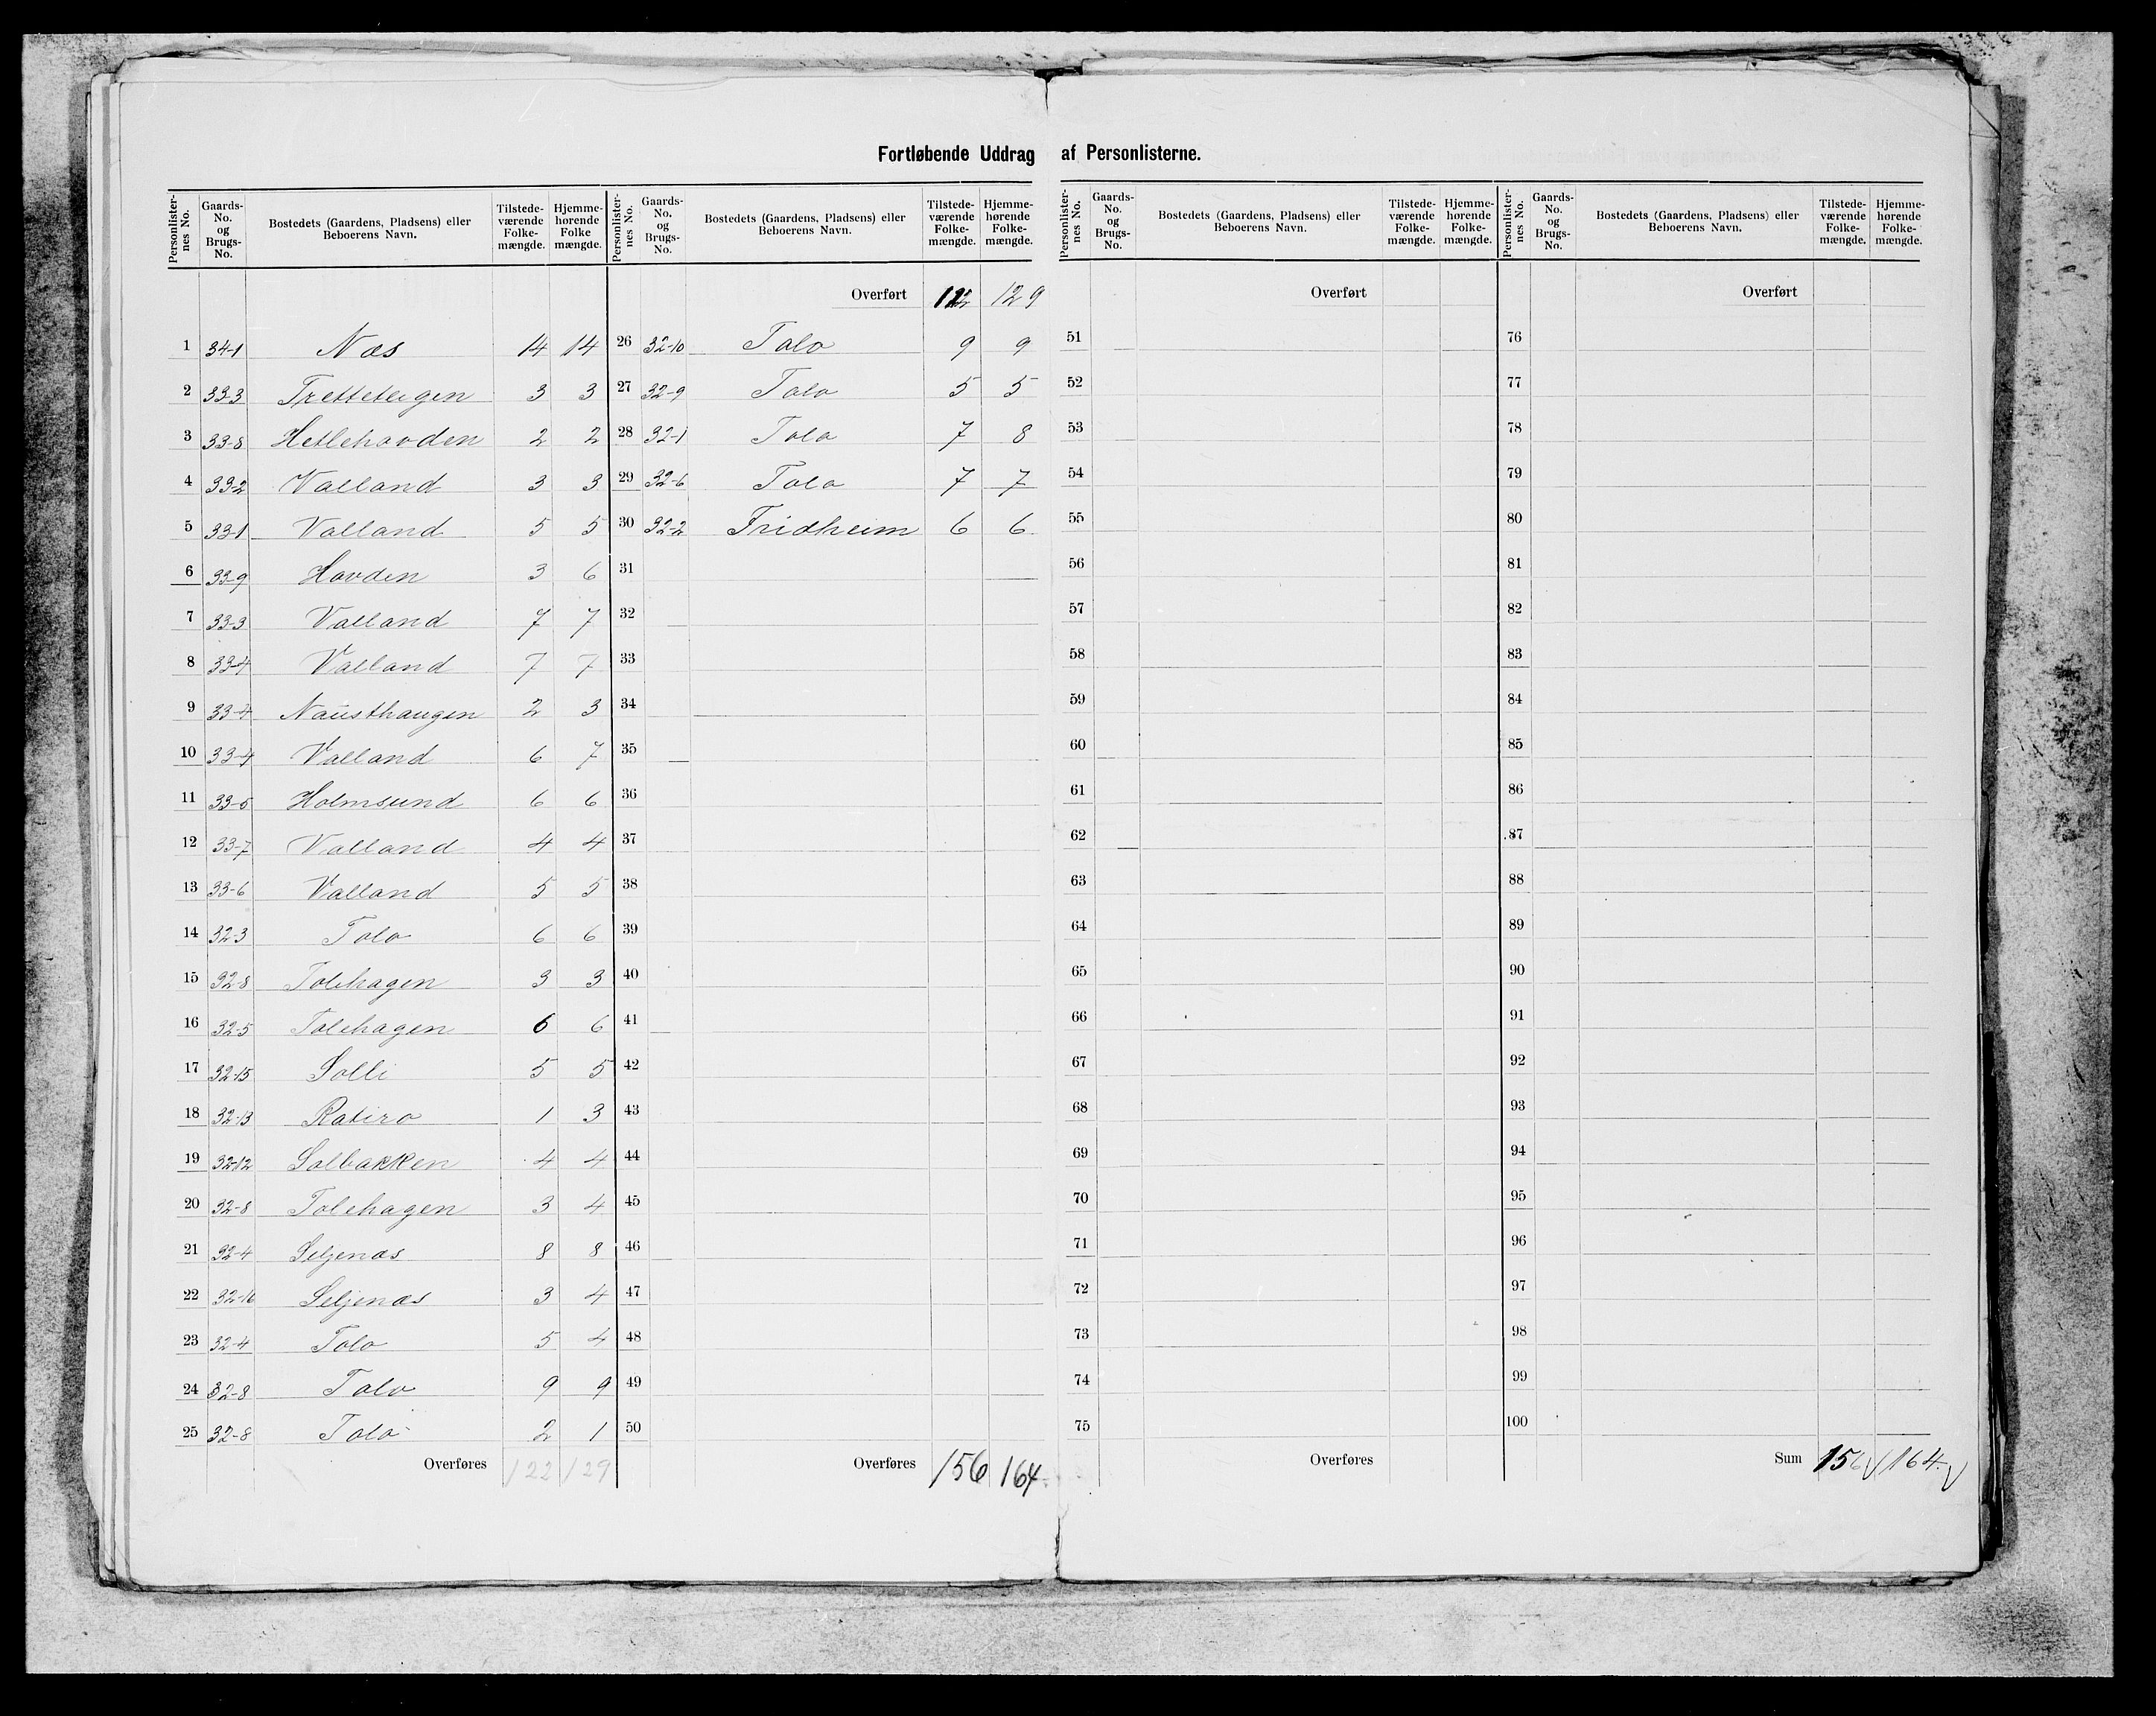 Fortløbende Uddrag af Personlisterne.
Personlister-nes No. Gaards-No. og Brugs-No. Bostedets (Gaardens, Pladsens) eller Beboerens Navn. Tilstede-værende Folke-mængde. Hjemme-hørende Folke mængde. Personlister-nes No. Gaards-No. og Brugs-No. Bostedets (Gaardens, Pladsens) eller Beboerens Navn. Tilstede-værende Folke-mængde. Hjemme-hørende Folke-mængde. Personlister-nes No. Gaards-No. og Brugs-No. Bostedets (Gaardens, Pladsens) eller Beboerens Navn. Tilstede-værende Folke-mængde. Hjemme-hørende Folke-mængde. Personlister-nes No. Gaards-No. og Brugs-No. Bostedets (Gaardens, Pladsens) eller Beboerens Navn. Tilstede-værende Folke-mængde. Hjemme-hørende Folke-mængde.
Overført 122 129 Overført Overført
1 34-1 Næs 14 14 26 32-10 Tolo 9 9 51 76
2 33-3 Trettebergen 3 3 27 32-9 Tolo 5 5 52 77
3 33-8 Hetlehovden 2 2 28 32-1 Tolo 7 8 53 78
4 33-2 Valland 3 3 29 32-6 Tolo 7 7 54 79
5 33-1 Valland 5 5 30 32-2 Fridheim 6 6 55 80
6 33-9 Hovden 3 6 31 56 81
7 33-3 Valland 7 7 32 57 82
8 33-4 Valland 7 7 33 58 83
9 33-4 Nausthaugen 2 3 34 59 84
10 33-4 Valland 6 7 35 60 85
11 33-5 Holmsund 6 6 36 61 86
12 33-7 Valland 4 4 37 62 87
13 33-6 Valland 5 5 38 63 88
14 32-3 Tolo 6 6 39 64 89
15 32-8 Tolehagen 3 3 40 65 90
16 32-5 Tolehagen 6 6 41 66 91
17 32-15 Solli 5 5 42 67 92
18 32-13 Roliro 1 3 43 68 93
19 32-12 Solbakken 4 4 44 69 94
20 32-8 Tolehagen 3 4 45 70 95
21 32-4 Seljenæs 8 8 46 71 96
22 32-16 Seljenæs 3 4 47 72 97
23 32-4 Tolo 5 4 48 73 98
24 32-8 Tolo 9 9 49 74 99
25 32-8 Tolo 2 1 50 75 100
Overføres 122 129 Overføres 156 164 Overføres Sum 156 164